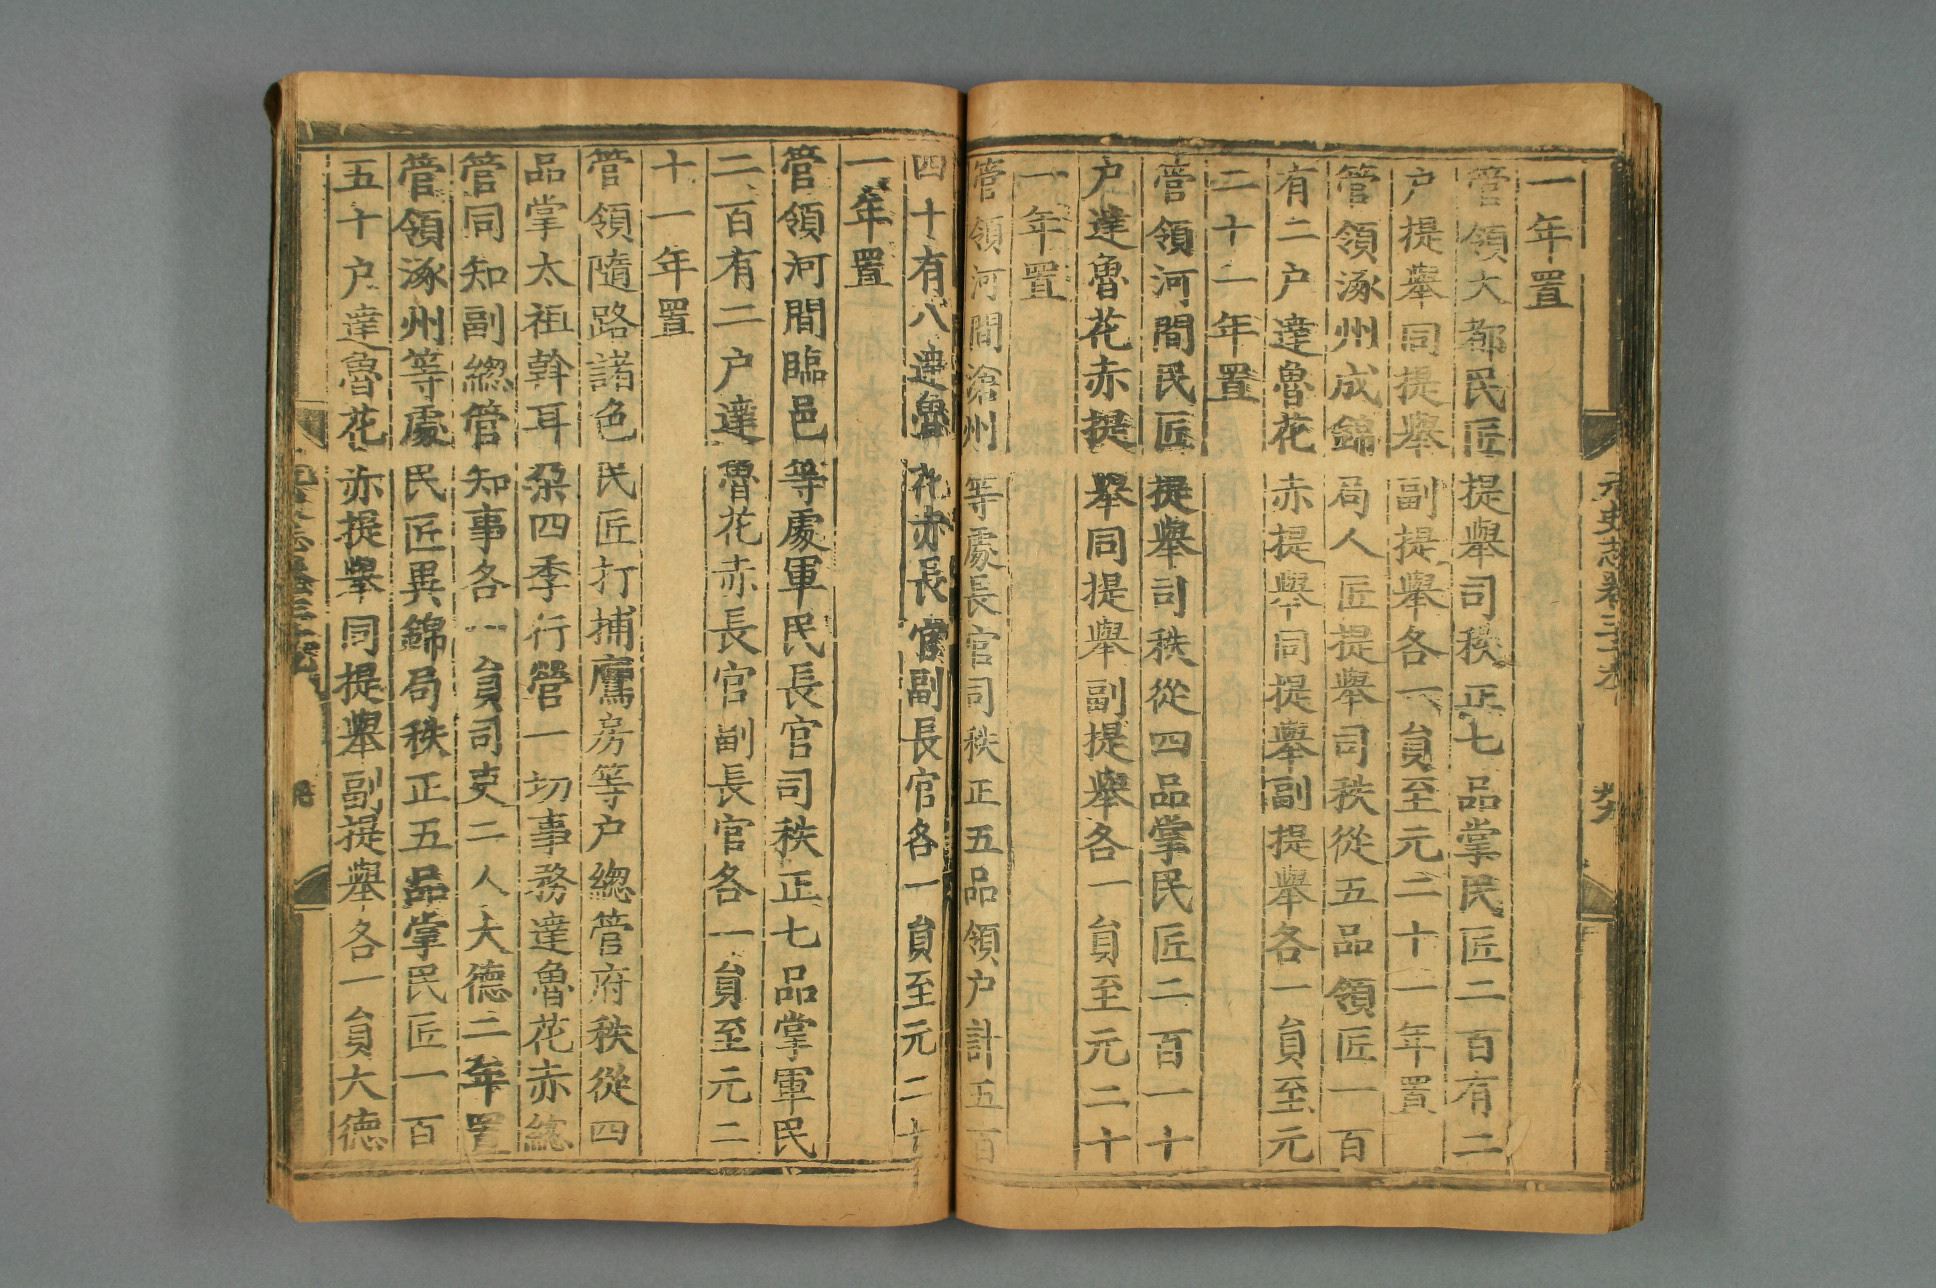 一年置
管領大都民匠提舉司秩正七品掌民匠二百有二
户提舉同提舉副提舉各一員至元二十一年置
管領涿州成錦局人匠提舉司秩從五品領匠一百
有二户達魯花赤提舉同提舉副提舉各一員至元
二十二年置
管領河間民匠提舉司秩從四品掌民匠二百一十
户達魯花赤提舉同提舉副提舉各一員至元二十
一年置
管領河間滄州等處長官司秩正五品領户計五百
四十有八達魯花赤長官副長官各一員至元二十
一年置
管領河間臨邑等處軍民長官司秩正七品掌軍民
二百有二户達魯花赤長官副長官各一員至元二
十一年置
管領隨路諸色民匠打捕鷹房等户緫管府秩從四
品掌太祖斡耳朶四季行營一切事務達魯花赤緫
管同知副緫管知事各一員司吏二人大德二年置
管領涿州等處民匠異錦局秩正五品掌民匠一百
五十户達魯花赤提舉同提舉副提舉各一員大德